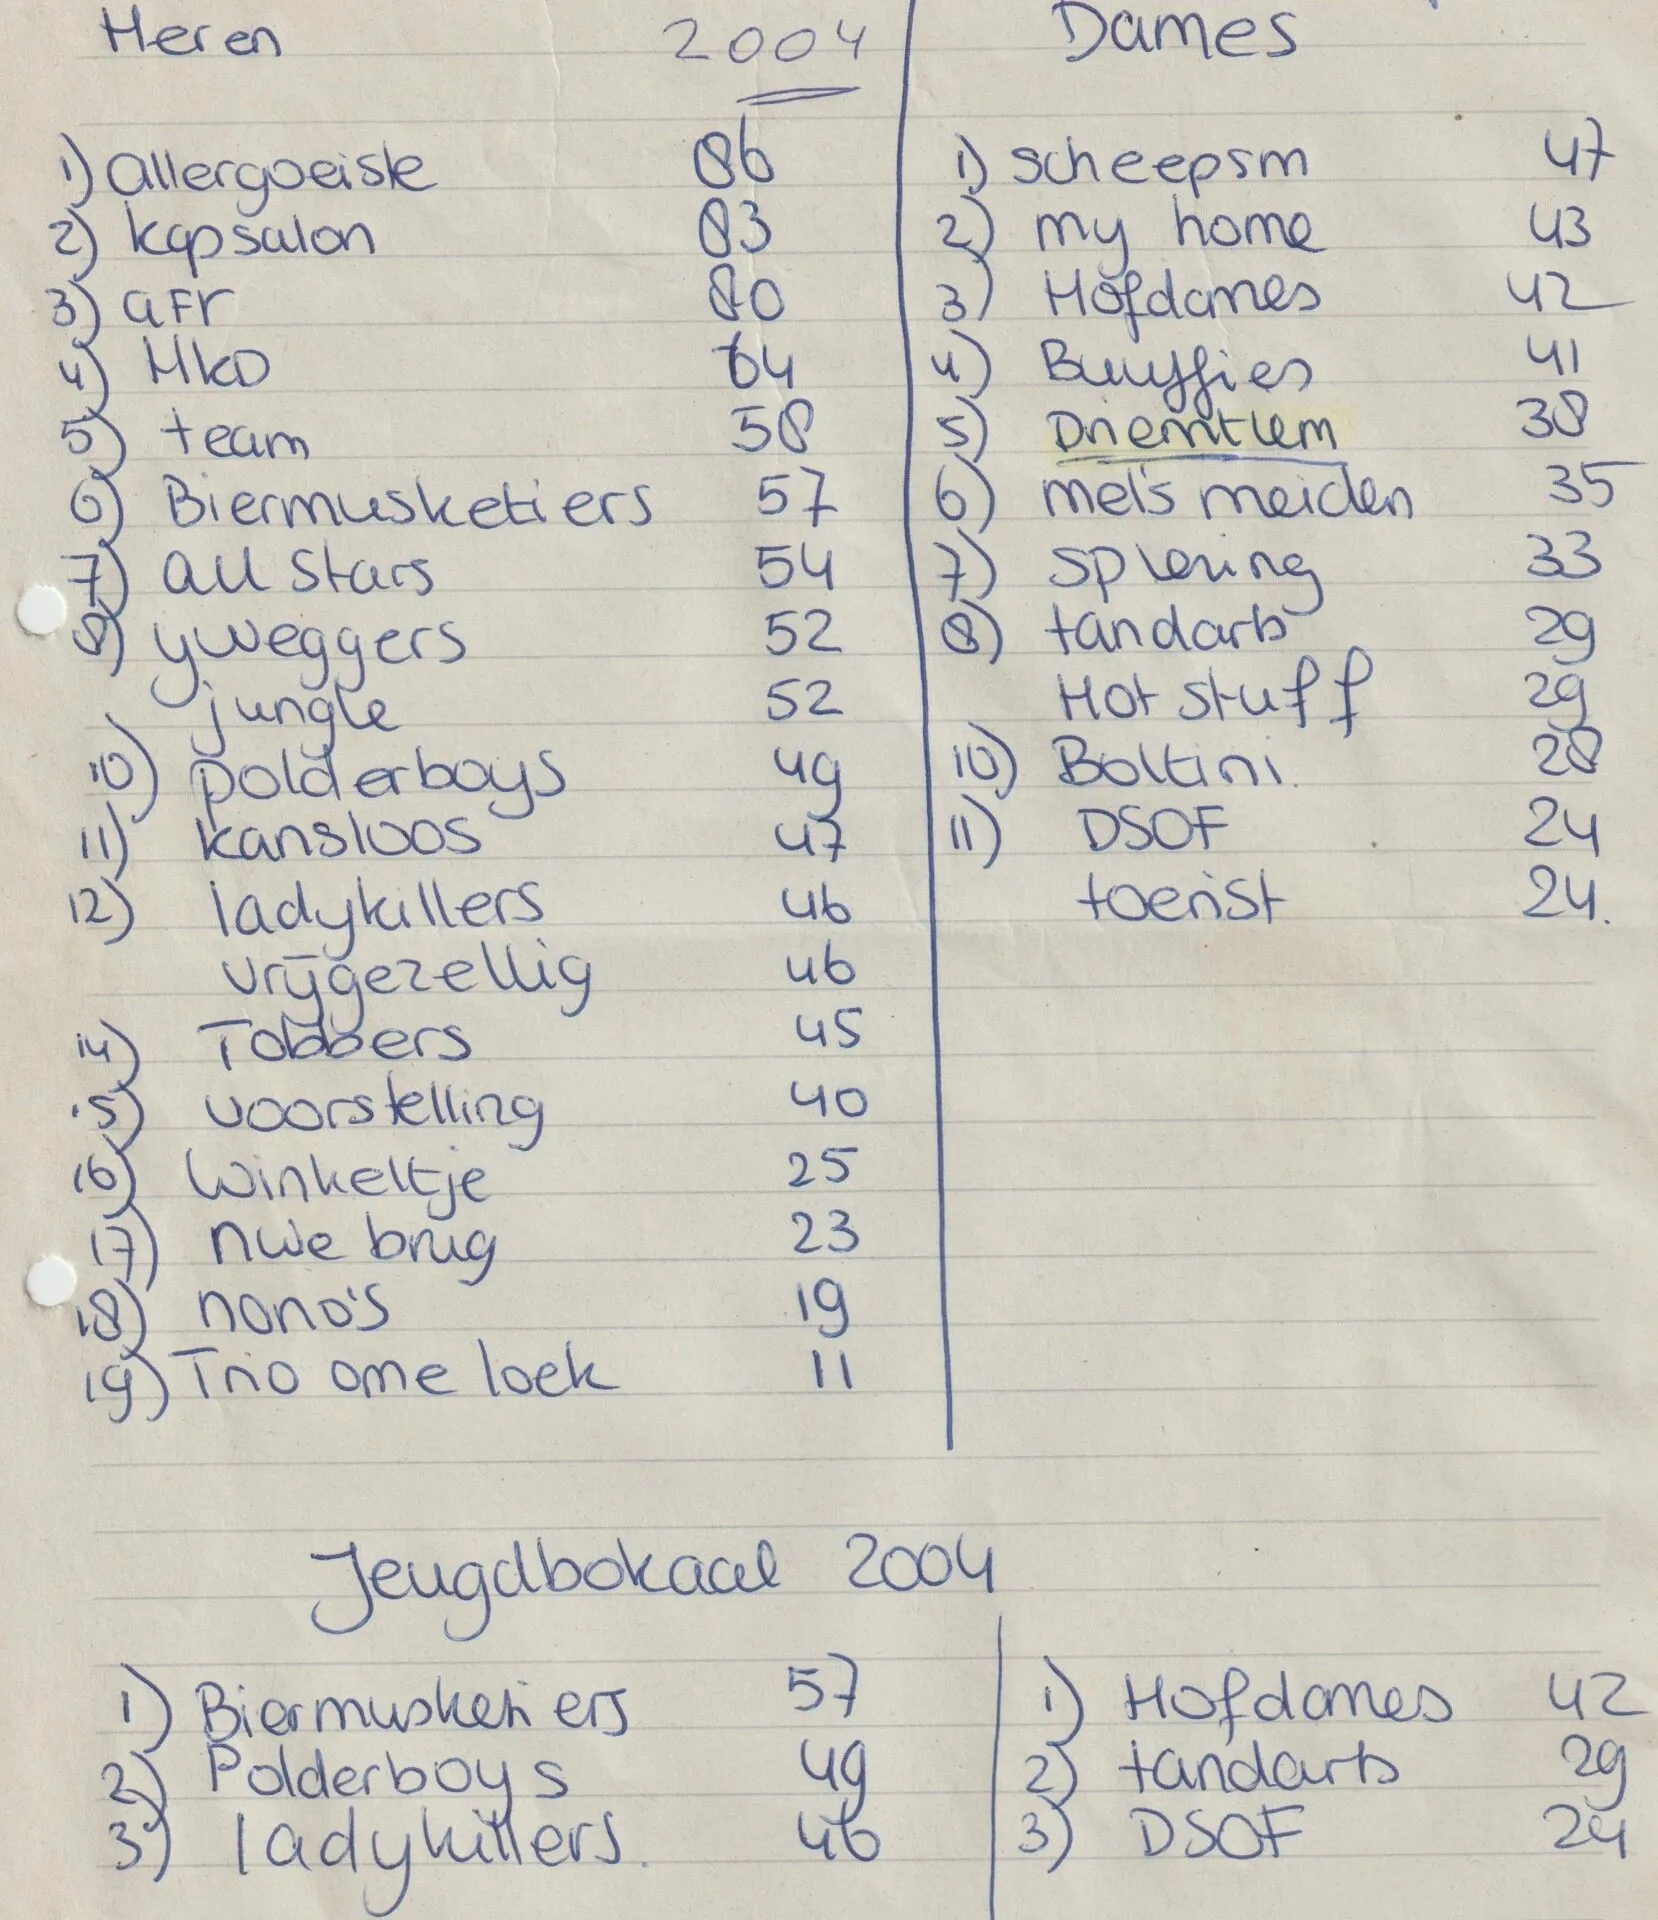 Heren 2004
1) allergoeiste 86
2) kapsalon 83
3) AFr 80
4) Hko 64
5) team 58
6) Biermusketiers 57
7) all stars 54
8) yweggers 52
jungle 52
10) polderboys 49
11) kansloos 47
12) ladykillers 46
vrijgezellig 46
14) Tobbers 45
15) voorstelling 40
16) Winkeltje 25
17) nwe brug 23
18) nono's 19
19) Trio ome loek 11
Dames
1) scheepsm 47
2) my home 43
3) Hofdames 42
4) Buuffies 41
5) Driemtlem 38
6) mels meiden 35
7) spiering 33
8) tandarts 29
Hot stuff 29
10) Boltini. 28
11) DSOF 24
toerist 24.
Jeugdbokaal 2004
1) Biermusketiers 57
2) Polderboys 49
3) ladykillers. 46
1) Hofdames 42
2) tandarts 29
3) DSOF 24